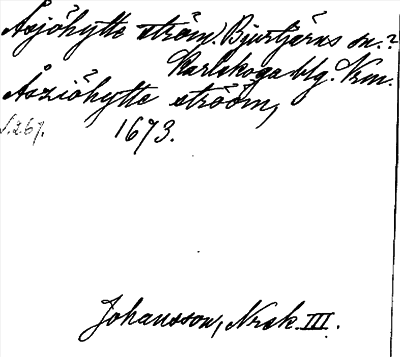 Åsjöhytte ström, Bjurtjärns sn.?
Karlskoga blg. Vrm.
Åsziöhytte ströóm,
S. 267. 1673.
Johansson, Nrek. III.